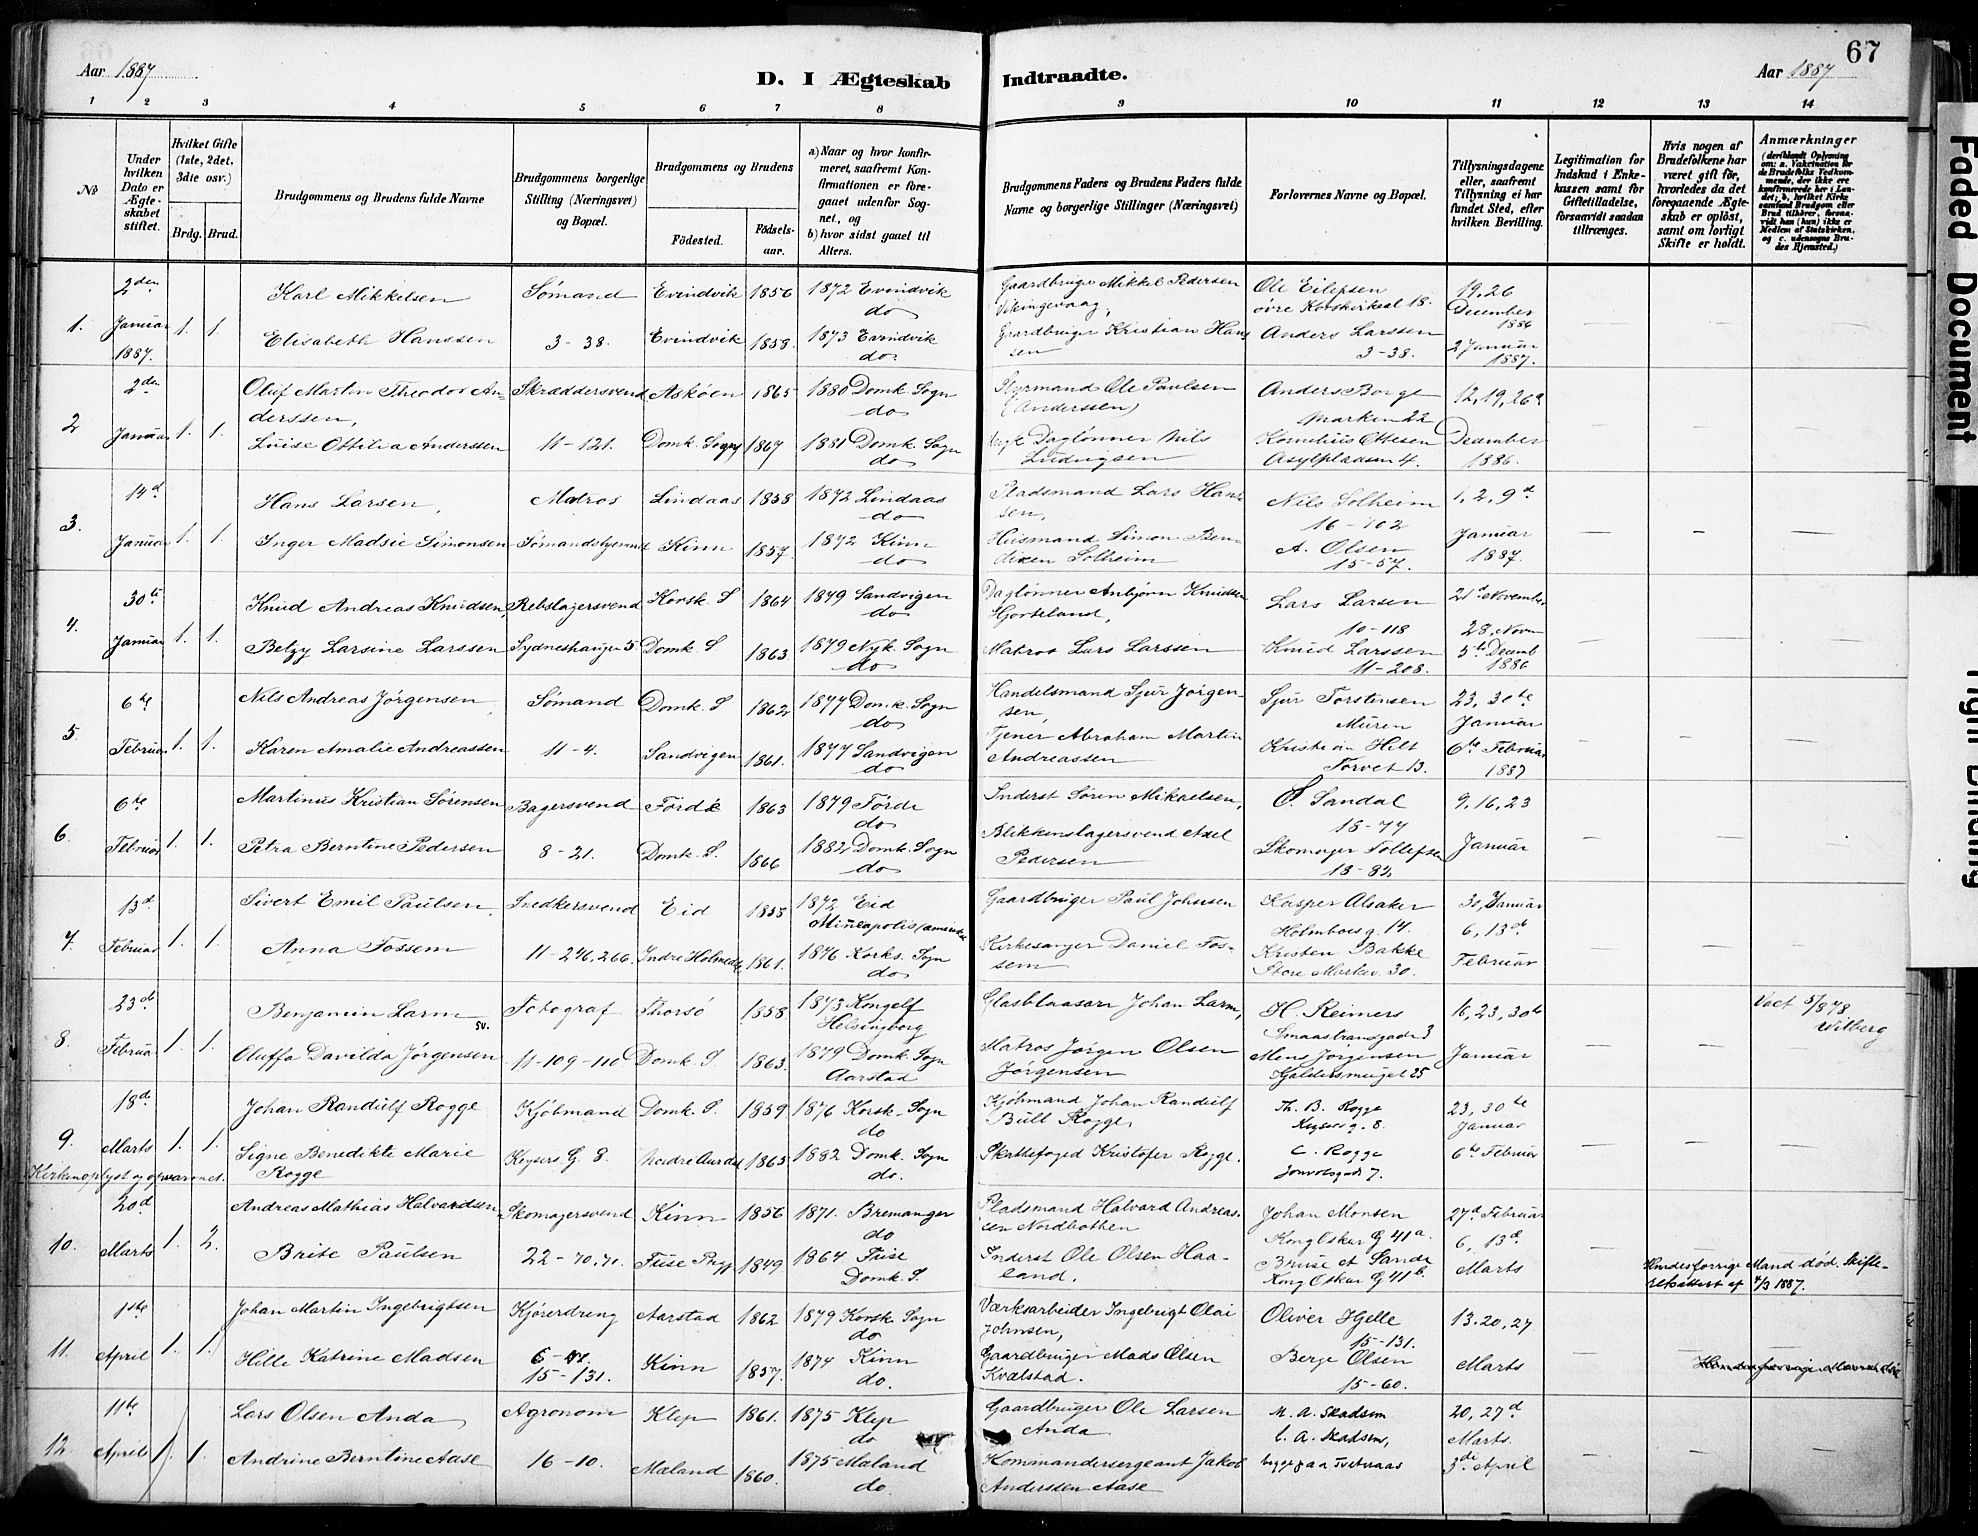 67
Aar 1887
D. I Ægteskab Indtraadte.
Aar 1887
1 2 3 4 5 6 7 8 9 10 11 12 13 14
No
Under hvilken Dato er Ægteskabet stiftet.
Hvilket Gifte (1ste, 2det, 3die osv.)
Brdg. Brud.
Brudgommens og Brudens fulde Navne
Brudgommens borgerlige Stilling (Næringsvei) og Bopæl.
Brudgommens og Brudens
Fødested.
Fødselsaar.
a) Naar og hvor konfirmeret, saafremt Konfirmationen er foregaaet udenfor Sognet, og
b) hvor sidst gaaet til Alters.
Brudgommens Faders og Brudens Faders fulde Navne og borgerlige Stillinger (Næringsvei)
Forlovernes Navne og Bopæl.
Tillysningsdagene eller, saafremt Tillysning ei har fundet Sted, efter hvilken Bevilling.
Legitimation for Indskud i Enkekassen samt for Giftetilladelse, forsaavidt saadan tiltrænges.
Hvis nogen af Brudefolkene har været gift før, hvorledes da det foregaaende Ægteskab er opløst, samt om lovligt Skifte er holdt.
Anmærkninger
(deriblandt Oplysning om: a. Vakcination for de Brudefolks Vedkommende, der ikke ere konfirmerede her i Landet; b. hvilket Kirkesamfund Brudgom eller Brud tilhører, forsaavidt han (hun) ikke er Medlem af Statskirken, og c. udensogns Brudes Hjemsted.)
1. 2den Januar 1887. 1. 1.
Karl Mikkelsen Sømand Evindvik 1856 1872 Evindvik do Gaardbruger Mikkel Pedersen Vikingevaag, Ole Eilepsen øvre Korskirkeal 18. 19, 26 December 1886
Elisabeth Hanssen 3-38. Evindvik 1858. 1873 Evindvik do. Gaardbruger Kristian Hanssen Anders Larssen 3-38. 2 Januar 1887.
2 2den Januar 1. 1.
Oluf Martin Theodor Anderssen, Skræddersvend Askøen 1865 1880 Domk. Sogn do Styrmand Ole Paulsen (Anderssen) Anders Borge Marken 22 12, 19, 26d
Luise Ottilia Anderssen 11-121. Domk. Sogn 1867 1881 Domk. Sogn do Daglønner Nils Ludvigsen Kornelius Ottesen Asylpladsen 4. December 1886.
3. 14d Januar 1. 1.
Hans Larsen, Matros Lindaas 1858 1872 Lindaas do Pladsmand Lars Hansen, Nils Solheim 16-102 1, 2, 9d
Inger Madsie Simonsen Sømandshjemmet Kinn 1857. 1872 Kinn do Husmand Simon Bendixen Solheim A. Olsen 15-57. Januar 1887.
4. 30te Januar 1. 1.
Knud Andreas Knudsen, Rebslagersvend Korsk. S 1864 1879 Sandvigen do Daglønner Anbjørn Knudsen Hjorteland, Lars Larsen 10-118 21d November
Betzy Larsine Larssen Sydneshaugen 5. Domk. S 1863. 1879 Nyk. Sogn do Matros Lars Larssen Knud Larssen 11-208. 28, Novem 5te Decemb 1886
5. 6te Februar 1. 1.
Nils Andreas Jørgensen, Sømand Domk. S 1862 1877 Domk. Sogn do Handelsmand Sjur Jørgensen, Sjur Torstensen Muren 23, 30te Januar
Karen Amalie Andreassen 11-4. Sandvigen 1861. 1877 Sandvigen do Tjener Abraham Martin Andreassen Kristian Hilt Torvet 13. 6te Februar 1887
6. 6te Februar 1. 1.
Martinus Kristian Sørensen Bagersvend Førde 1863 1879 Førde do Inderst Søren Mikaelsen, O. Sandal 18-77 9, 16, 23
Petra Berntine Pedersen 8-21. Domk. S. 1866 1882 Domk. Sogn do Blikkenslagersvend Axel Pedersen Skomager Tollefsen 18-82 Januar
7. 13d Februar 1. 1.
Sivert Emil Paulsen, Snedkersvend Eid 1855 1872 Eid Mineapolis, Amerika Gaardbruger Paul Johnsen Kasper Alsaker Holmboesg. 14. 30, Januar 6, 13d
Anna Fossem 11-246, 266. Indre Holmedal 1861. 1876 Korks. Sogn do Kirkesanger Daniel Fossem Kristen Bakke Store Markev. 30. Februar
8. 23de Februar 1. 1.
Benjamin Larm sv. Fotograf Thorsø 1858. 1873 Kongelf Helsingborg Glasblaaser Johan Larm, H. Reimers Smaastrandgade 3 16, 23, 30te Vact 5/8 78 Wilberg
Oluffa Davilda Jørgensen 11-109-110 Domk. S. 1863. 1879 Domk. Sogn Aarstad Matros Jørgen Olsen Jørgensen Mons Jørgensen Kjeldersmuget 25 Januar
9. 18d Marts 1. 1.
Johan Randulf Rogge Kjøbmand Domk. S. 1859. 1876 Korsk. Sogn do Kjøbmand Johan Randulf Bull Rogge, Th. B. Rogge Keysersg. 8. 23, 30te Januar
Signe Benedikte Marie Rogge Keysers G. 8. Nordre Aurdal 1863 1882 Domk. Sogn do. Skattefoged Kristofer Rogge. C. Rogge Jonvolsgade 7. 6te Februar
Kirken oplyst og opvarmet.
10. 20d Marts 1. 2.
Andreas Mathias Halvardsen, Skomagersvend Kinn 1856 1871. Bremanger do Pladsmand Halvard Andreassen Nordbotten Johan Monsen Kong Oskar G 41a. 27d Februar 6, 13d
Brite Paulsen 22-70, 71. Fuse Prgj 1849. 1864 Fuse Domk. S. Inderst Ole Olsen Haaland. Bruse et Sande Kong Oskar G 41b. Marts Hindes forrige Mand død. Skifteretsattest af 4/3 1887.
11. 1ste April 1. 1.
Johan Martin Ingebrigtsen Kjøredreng Aarstad 1862 1879 Korsk. Sogn do Værksarbeider Ingebrigt Olai Johnsen, Oliver Hjelle 15-131. 13. 20, 27
Hille Katrine Madsen 15-131. Kinn 1857. 1874 Kinn do. Gaardbruger Mads Olsen Kvalstad. Berge Olsen 15-60. Marts
12. 11te April 1. 1.
Lars Olsen Anda, Agronom Klep 1861. 1875 Klep do Gaardbruger Ole Larsen Anda M. A. Skadsem C. A. Skadsem, 20, 27d Marts.
Andrine Berntine Aase 16-10. Mæland 1860. 1875 Mæland do. Kommandersergeant Jakob Andersken Aase begge paa Tveteraas 3de April
Faded Document
Tight Binding